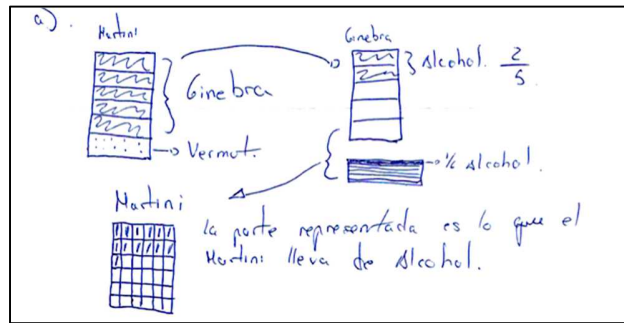 a).
Martini
Ginebra
Ginebra
} Alcohol. 2/5
→ Vermut.
→ 1/6 Alcohol.
Martini
la parte representada es lo que el
Martini lleva de Alcohol.